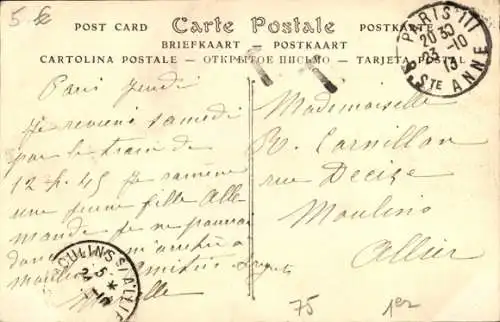 5 €
POST CARD Carte Postale POSTKARTE
BRIEFKAART - POSTKAART
CARTOLINA POSTALE - ОТКРЫТОЕ ПИСЬМО - TARJETA POSTAL
PARIS III
20 30
23 - 10
13
STE ANNE
Paris Jeudi
Je reviens samedi
par le train de
12 h. 45 Je ramène
une jeune fille Alle
mande je ne pourrai
donc m'arrêter à
Moulins Amitiés
Mademoiselle
R. Cornillon
rue Decize
Moulins
Allier
MOULINS S/ALLIER
5 *
24 - 10
75
1er